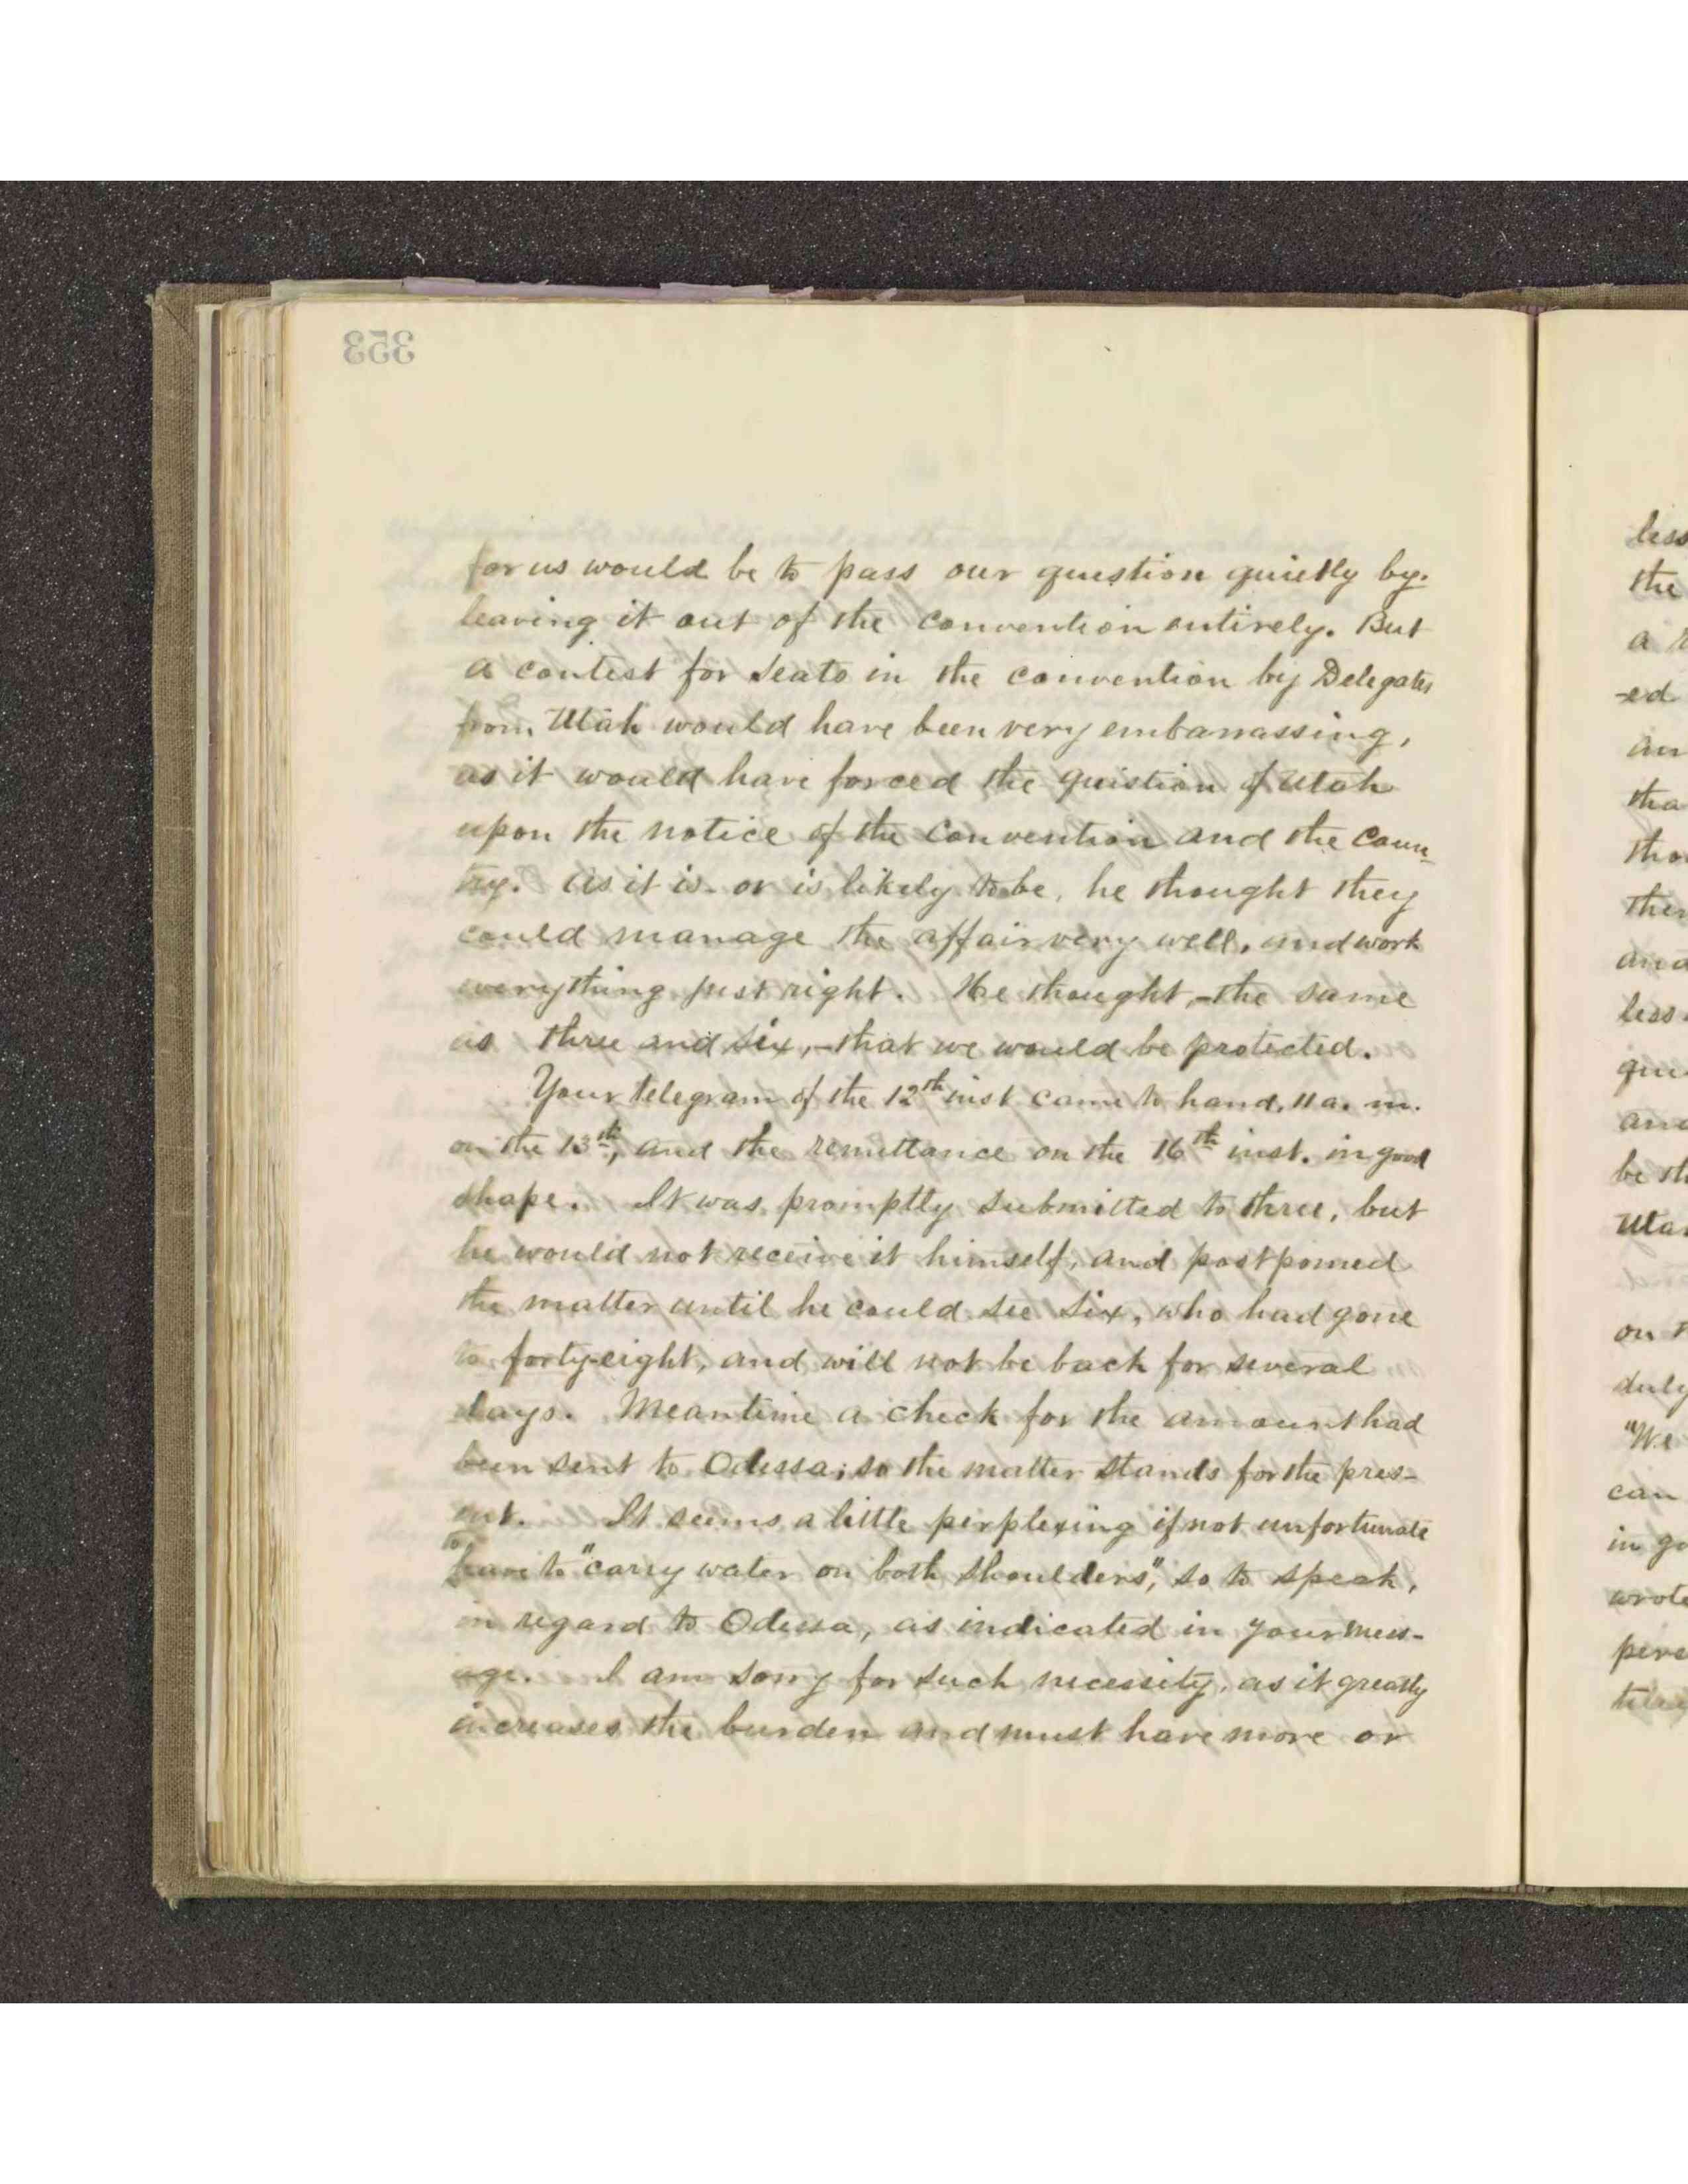 353
for us would be to pass our question quietly by.
leaving it out of the convention entirely. But
a contest for seats in the convention by Delegates
from Utah would have been very embarrassing,
as it would have forced the question of Utah
upon the notice of the Convention and the Coun-
try. As it is or is likely to be, he thought they
could manage the affair very well, and work
everything just right. He thought,-the same
as three and six,-that we would be protected.
Your telegram of the 12th inst came to hand, 11 a. m.
on the 13th, and the remittance on the 16th inst. in good
shape. It was promptly submitted to three, but
he would not receive it himself, and postponed
the matter until he could see six, who had gone
to forty-eight, and will not be back for several
days. Meantime a check for the amount had
been sent to Odessa; so the matter stands for the pres-
ent. It seems a little perplexing if not unfortunate
to have to "carry water on both shoulders", so to speak,
in regard to Odessa, as indicated in your mess-
age. I am sorry for such necessity, as it greatly
increases the burden and must have more or
less
the
a
-ed
an
tha
tho
then
and
less
que
and
be th
Utah
on
duly
"We
can
in go
wrote
perc